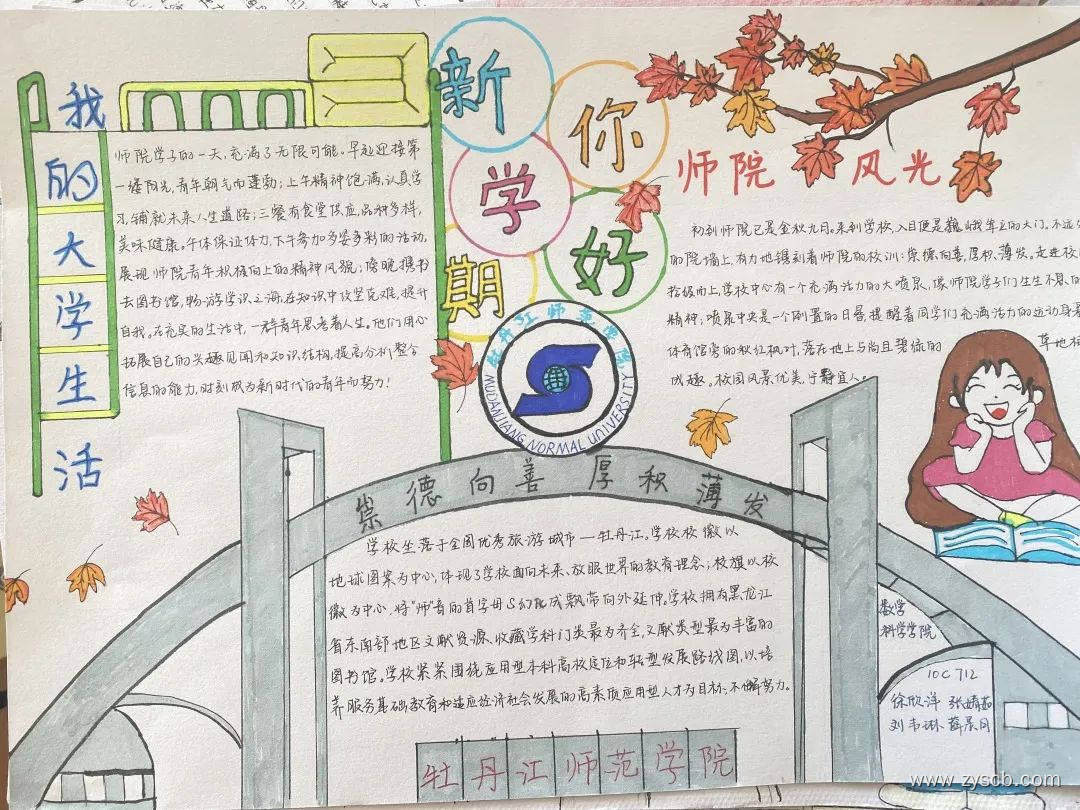 新学期
你好
我的大学生活
师院学子的一天,充满了无限可能。早起迎接第
一缕阳光,青年朝气而蓬勃;上午精神饱满,认真学
习,铺就未来人生道路;三餐有食堂供应,品种多样,
美味健康。午休保证体力,下午参加多姿多彩的活动,
展现师院青年积极向上的精神风貌;傍晚携书
去图书馆,畅游学识之海,在知识中攻坚克难,提升
自我。在充实的生活中,一群青年思考着人生。他们用心
拓展自己的兴趣见闻和知识结构,提高分析整合
信息的能力,时刻成为新时代的青年而努力!
师院 风光
初到师院已是金秋九月。来到学校,入目便是巍峨耸立的大门,不远处
的院墙上,有力地镌刻着师院的校训:崇德向善,厚积薄发。走进校
拾级而上,学校中心有一个充满活力的大喷泉,像师院学子们生生不息的
精神;喷泉中央是一个倒置的日晷,提醒着同学们充满活力的运动身
体育馆旁的秋红枫叶,落在地上与尚且碧绿的 草地相
成趣。校园风景优美,宁静宜人。
牡丹江师范学院
MUDANJIANG NORMAL UNIVERSITY
崇德向善 厚积薄发
学校坐落于全国优秀旅游城市—牡丹江。学校校徽以
地球图案为中心,体现了学校面向未来、放眼世界的教育理念;校旗以校
徽为中心,将"师"音的首字母S幻化成飘带向外延伸。学校拥有黑龙江
省东南部地区文献资源、收藏学科门类最为齐全,文献类型最为丰富的
图书馆。学校紧紧围绕应用型本科高校定位和转型发展路线图,以培
养服务基础教育和适应经济社会发展的高素质应用型人才为目标,不懈努力。
数学
科学学院
10C712
徐欣洋 张婧茹
刘韦琳 薛晨月
牡丹江师范学院
www.zyscb.com